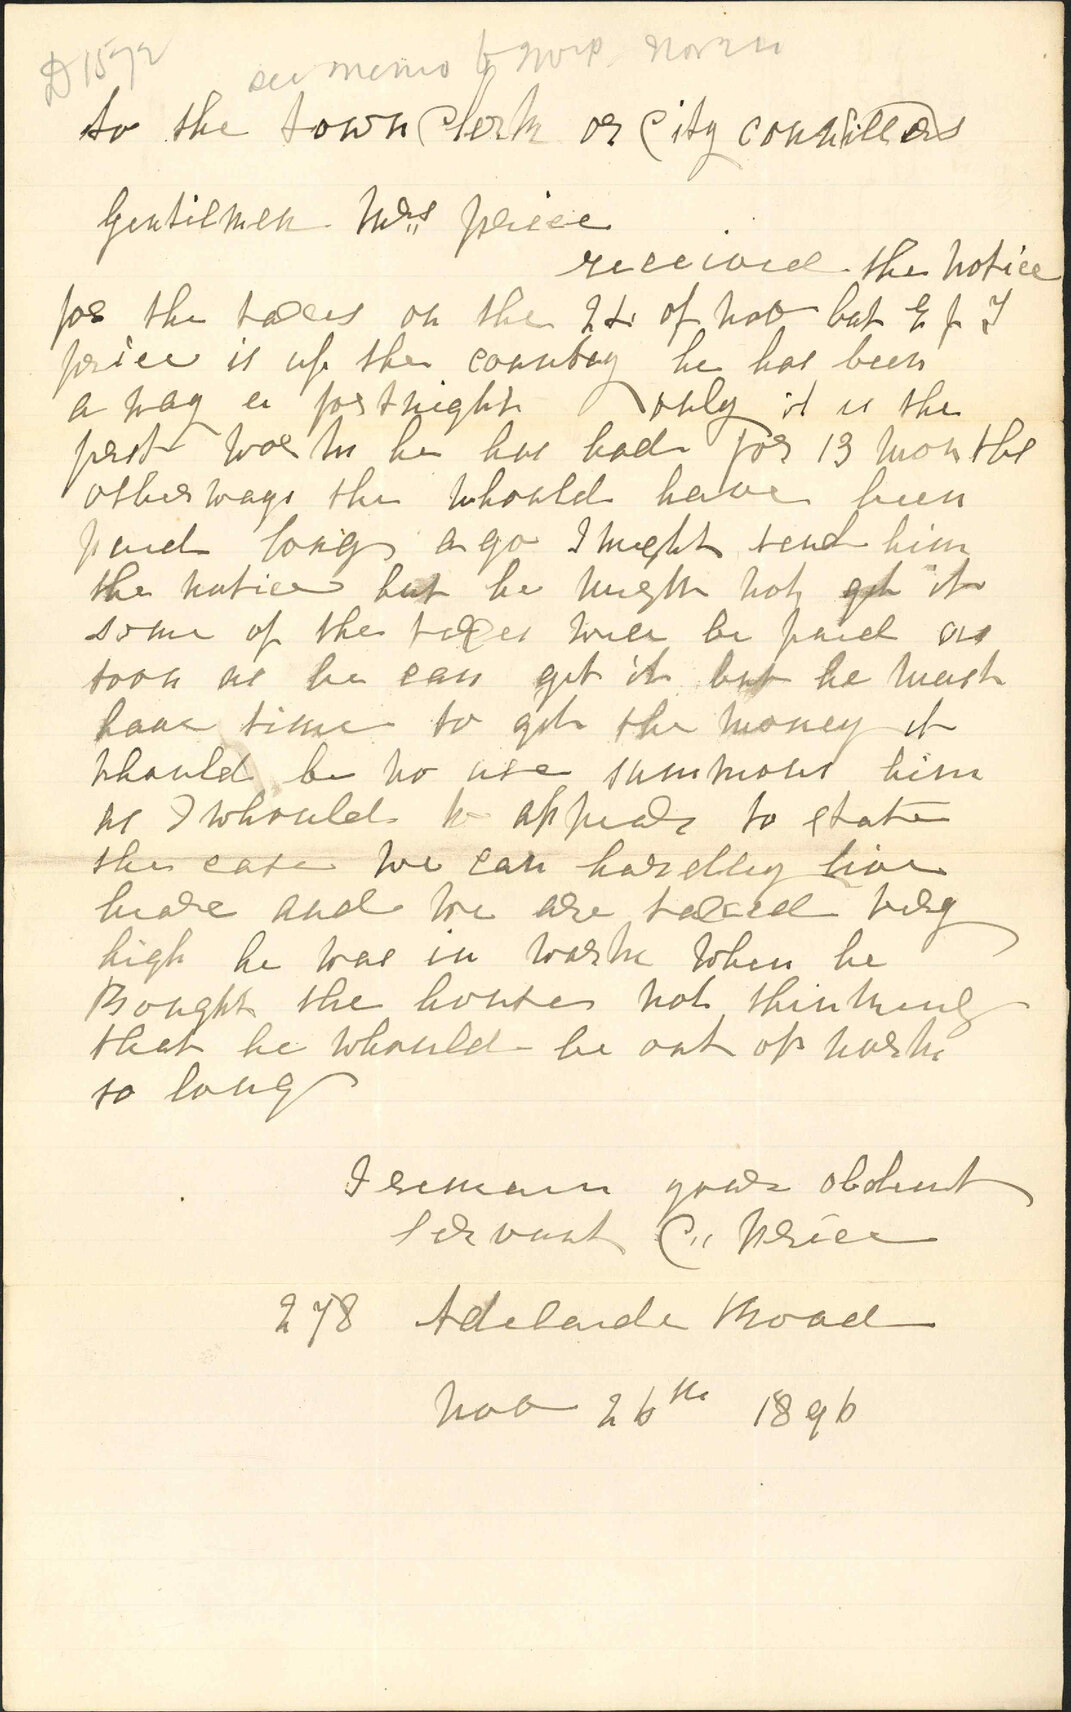 D1572
see memo to Insp.
to the town Clerk or City councillers
Gentilmen Mrs price
received the notice
for the taxes on the 24 of nov but E p J
price is up the country he has been
a way a fortnight only it is the
first work he has had for 13 months
otherways the whould have been
paid long ago I might send him
the notice but he might not get it
some of the taxes will be paid as
soon as he can get it but he must
have time to get the money it
whould be no use summons him
as I whould to appear to state
the case we can hardley live
heare and we are taxed very
high he was in work when he
Bought the houses not thinking
that he whould be out of work
so long
I remain your obdient
servant C,, price
278 Adelaide Road
Nov 26th 1896